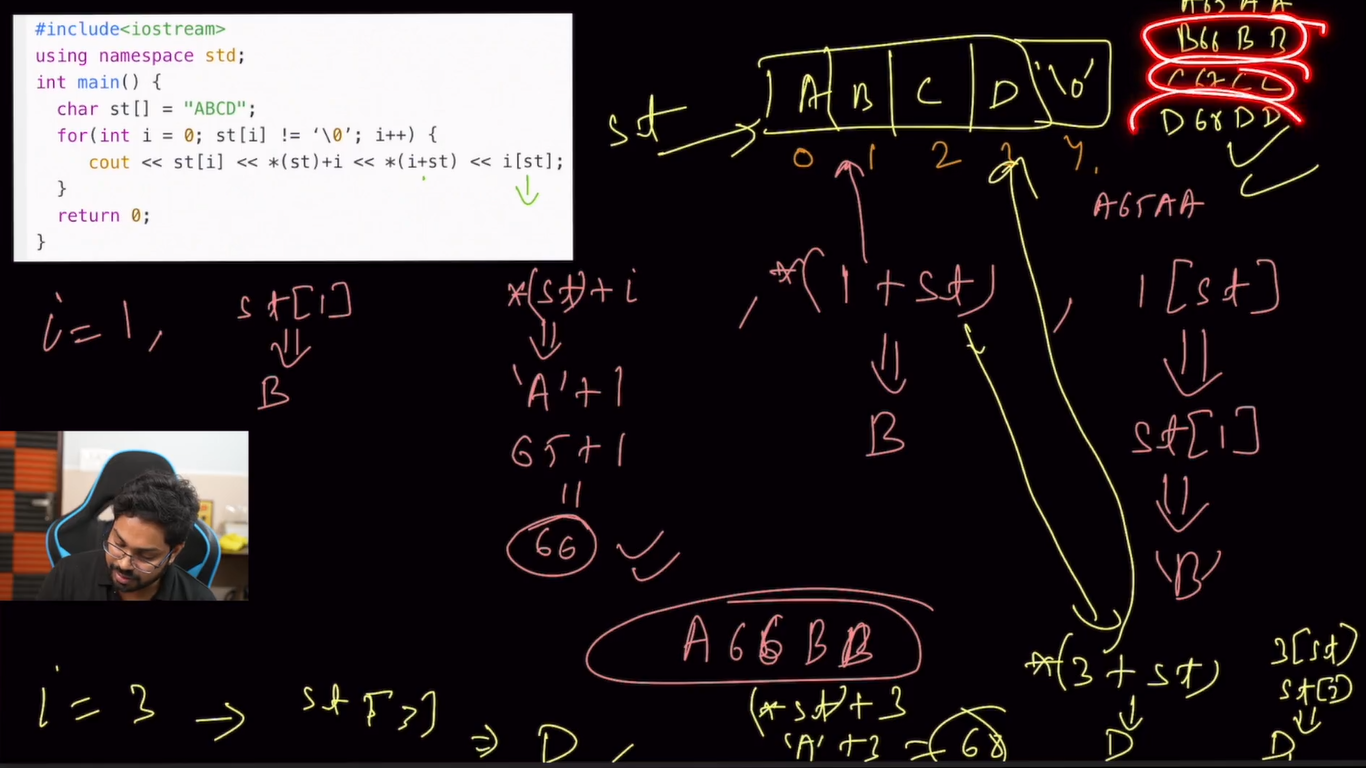 #include<iostream>
using namespace std;
int main() {
char st[] = "ABCD";
for(int i = 0; st[i] != ‘\0’; i++) {
cout << st[i] << *(st)+i << *(i+st) << i[st];
}
return 0;
}
st
A B C D '\0'
0 1 2 3 4
A 65 A A
B66 B B
C 67 C C
D 68 D D
A65AA
i = 1,
st[1]
B
*(st)+i
'A'+1
65+1
66
, *(1 + st)
B
, 1[st]
st[1]
'B'
A 66 B B
i = 3 → st[3] ⇒ D,
(*st)+3
'A' +3 = 68
*(3 + st)
D
3[st]
st[3]
D